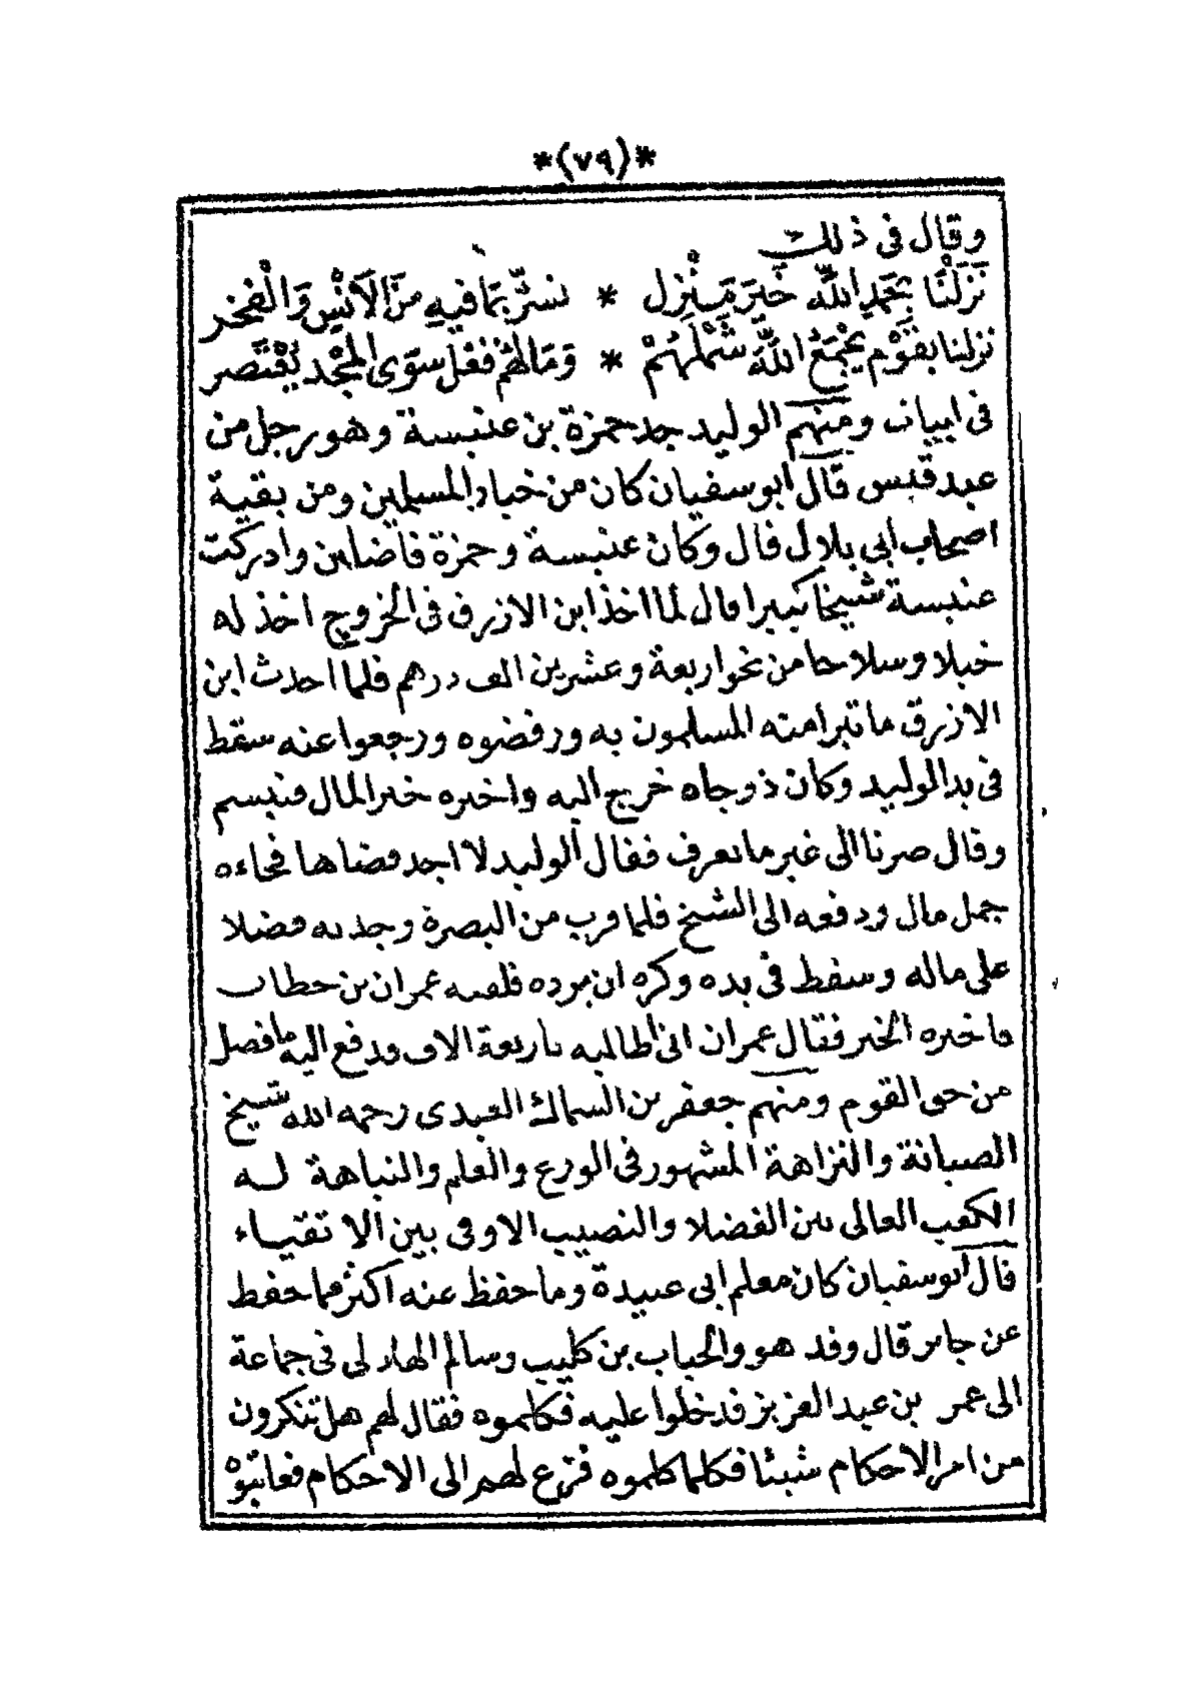 *(٧٩)*
وقال فى ذلك
نَزَلْنَا بِحَمدِ اللَّه خَيرَ مَنْزِل * نسرّ بمَا فيهِ مِنَ الاَنْسِ وَالْفخر
نزلنا بقَوْم يَجْمَعُ اللَّهُ شَمْلَهُمْ * وَمَا لهُم ففل سوَى المجْد يُقْتَصر
فى ابيات ومنهم الوليد جد حمزة بن عنبسة وهو رجل من
عبد قيس قال ابو سفيان كان من خيار المسلمين ومن بقية
اصحاب ابى بلال قال وكان عنبسة وحمزة فاضلين وادركت
عنبسة شيخا كبيرا قال لما اخذ ابن الازرق فى الخروج اخذ له
خيلا وسلاحا من نحو اربعة وعشرين الف درهم فلما احدث ابن
الازرق ما تبرا منه المسلمون به ورفضوه ورجعوا عنه سقط
فى يد الوليد وكان ذوجاه خرج اليه واخبره خبر المال فتبسم
وقال صرنا الى غير ما نعرف فقال الوليد لا اجد قضاها فجاءه
جمل مال ودفعه الى الشيخ فلما قرب من البصرة وجد به فضلا
على ماله وسقط فى يده وكره ان يرده فلقيه عمران بن حطاب
فاخبره الخبر فقال عمران انى اطالبه باربعة الاف ودفع اليه ما فضل
من حى القوم ومنهم جعفر بن السماك العبدى رحمه الله شيخ
الصيانة والنزاهة المشهور فى الورع والعلم والنباهة لـه
الكعب العالى بين الفضلا والنصيب الاوفى بين الاتقيـاء
قال ابو سفيان كان معلم ابى عبيدة وما حفظ عنه اكثر مما حفظ
عن جابر قال وفد هو والحباب بن كليب وسالم الهلالى فى جماعة
الى عمر بن عبد العزيز فدخلوا عليه فكلموه فقال لهم هل تنكرون
من امر الاحكام شيئا فكلما كلموه فزع لهم الى الاحكام فعاتبوْهْ